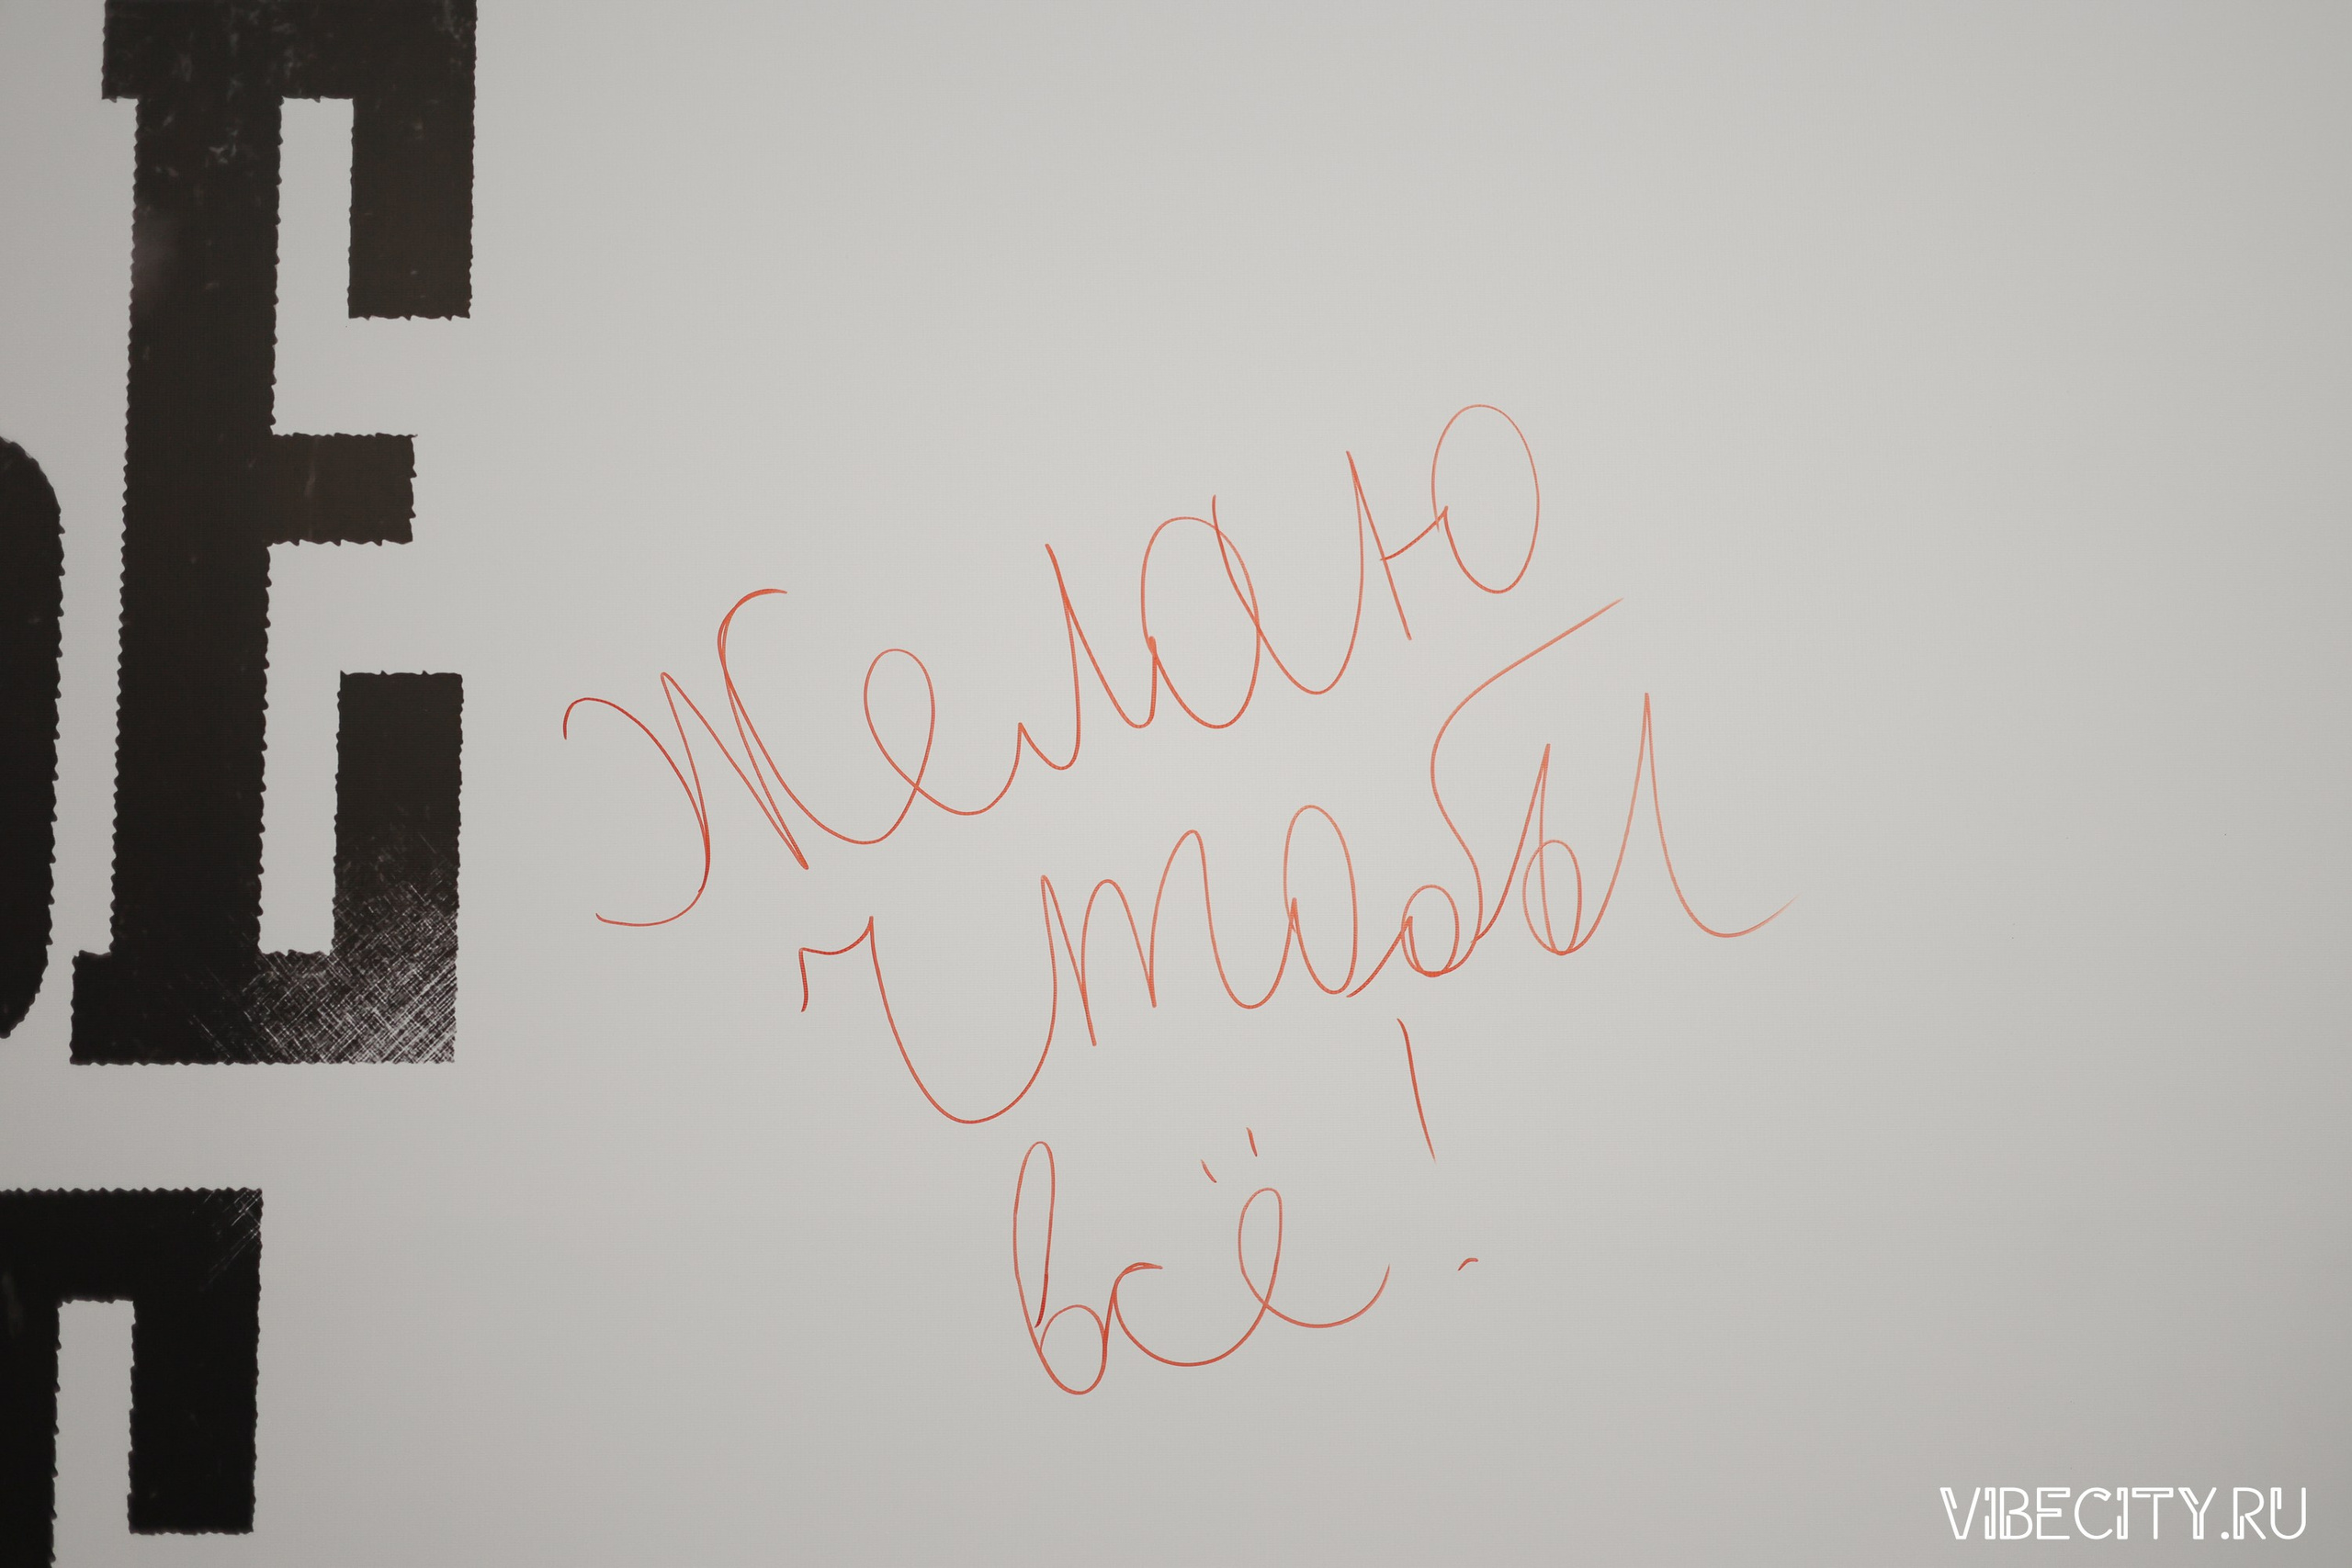 Желаю
чтобы
всё!
VIBECITY.RU